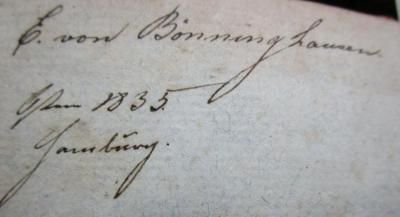 E. von Bönninghausen.
1835.
Hamburg.